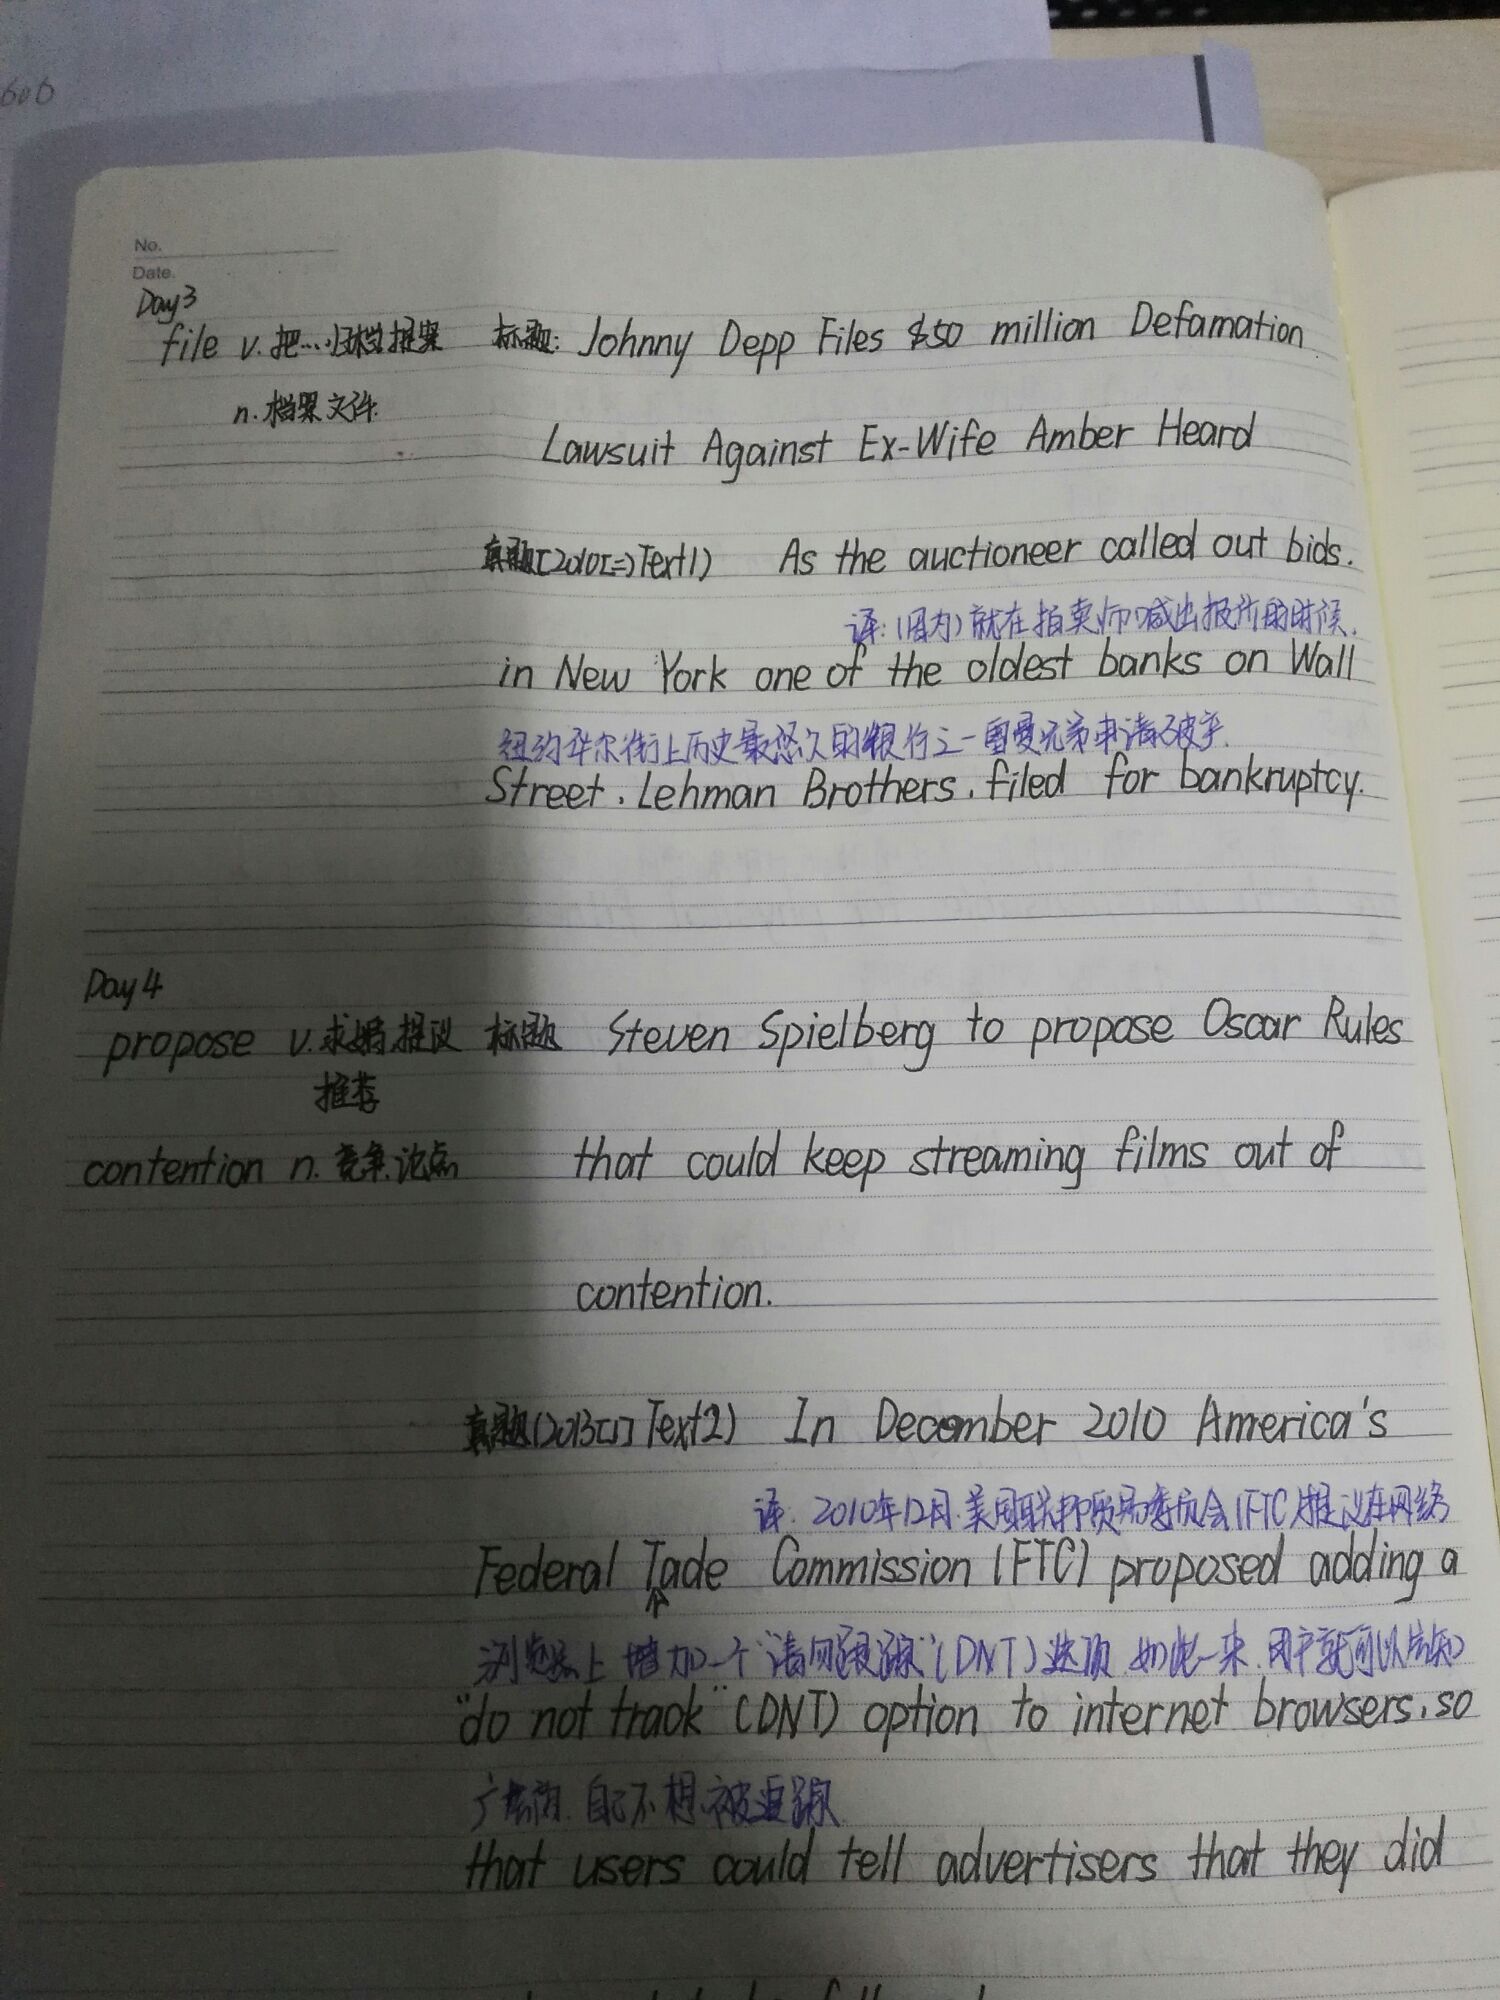 606
No.
Date.
Day3
file v. 把…归档,提案 标题: Johnny Depp Files $50 million Defamation
n. 档案 文件
Lawsuit Against Ex-Wife Amber Heard
真题[2010(二)Text1) As the auctioneer called out bids.
译:(因为)就在拍卖师喊出报价的时候,
in New York one of the oldest banks on Wall
纽约华尔街上历史最悠久的银行之一雷曼兄弟申请破产.
Street, Lehman Brothers, filed for bankruptcy.
Day4
propose v.求婚,提议 标题 Steven Spielberg to propose Oscar Rules
推荐
contention n. 竞争.论点 that could keep streaming films out of
contention.
真题(2013[] Text2) In December 2010 America's
译. 2010年12月.美国联邦贸易委员会(FTC)提议在网络
Federal Tade Commission (FTC) proposed adding a
浏览器上 增加一个"请勿跟踪"(DNT)选项.如此一来.用户就可以告知
"do not track" (DNT) option to internet browsers, so
广告商.自己不想被追踪
that users could tell advertisers that they did